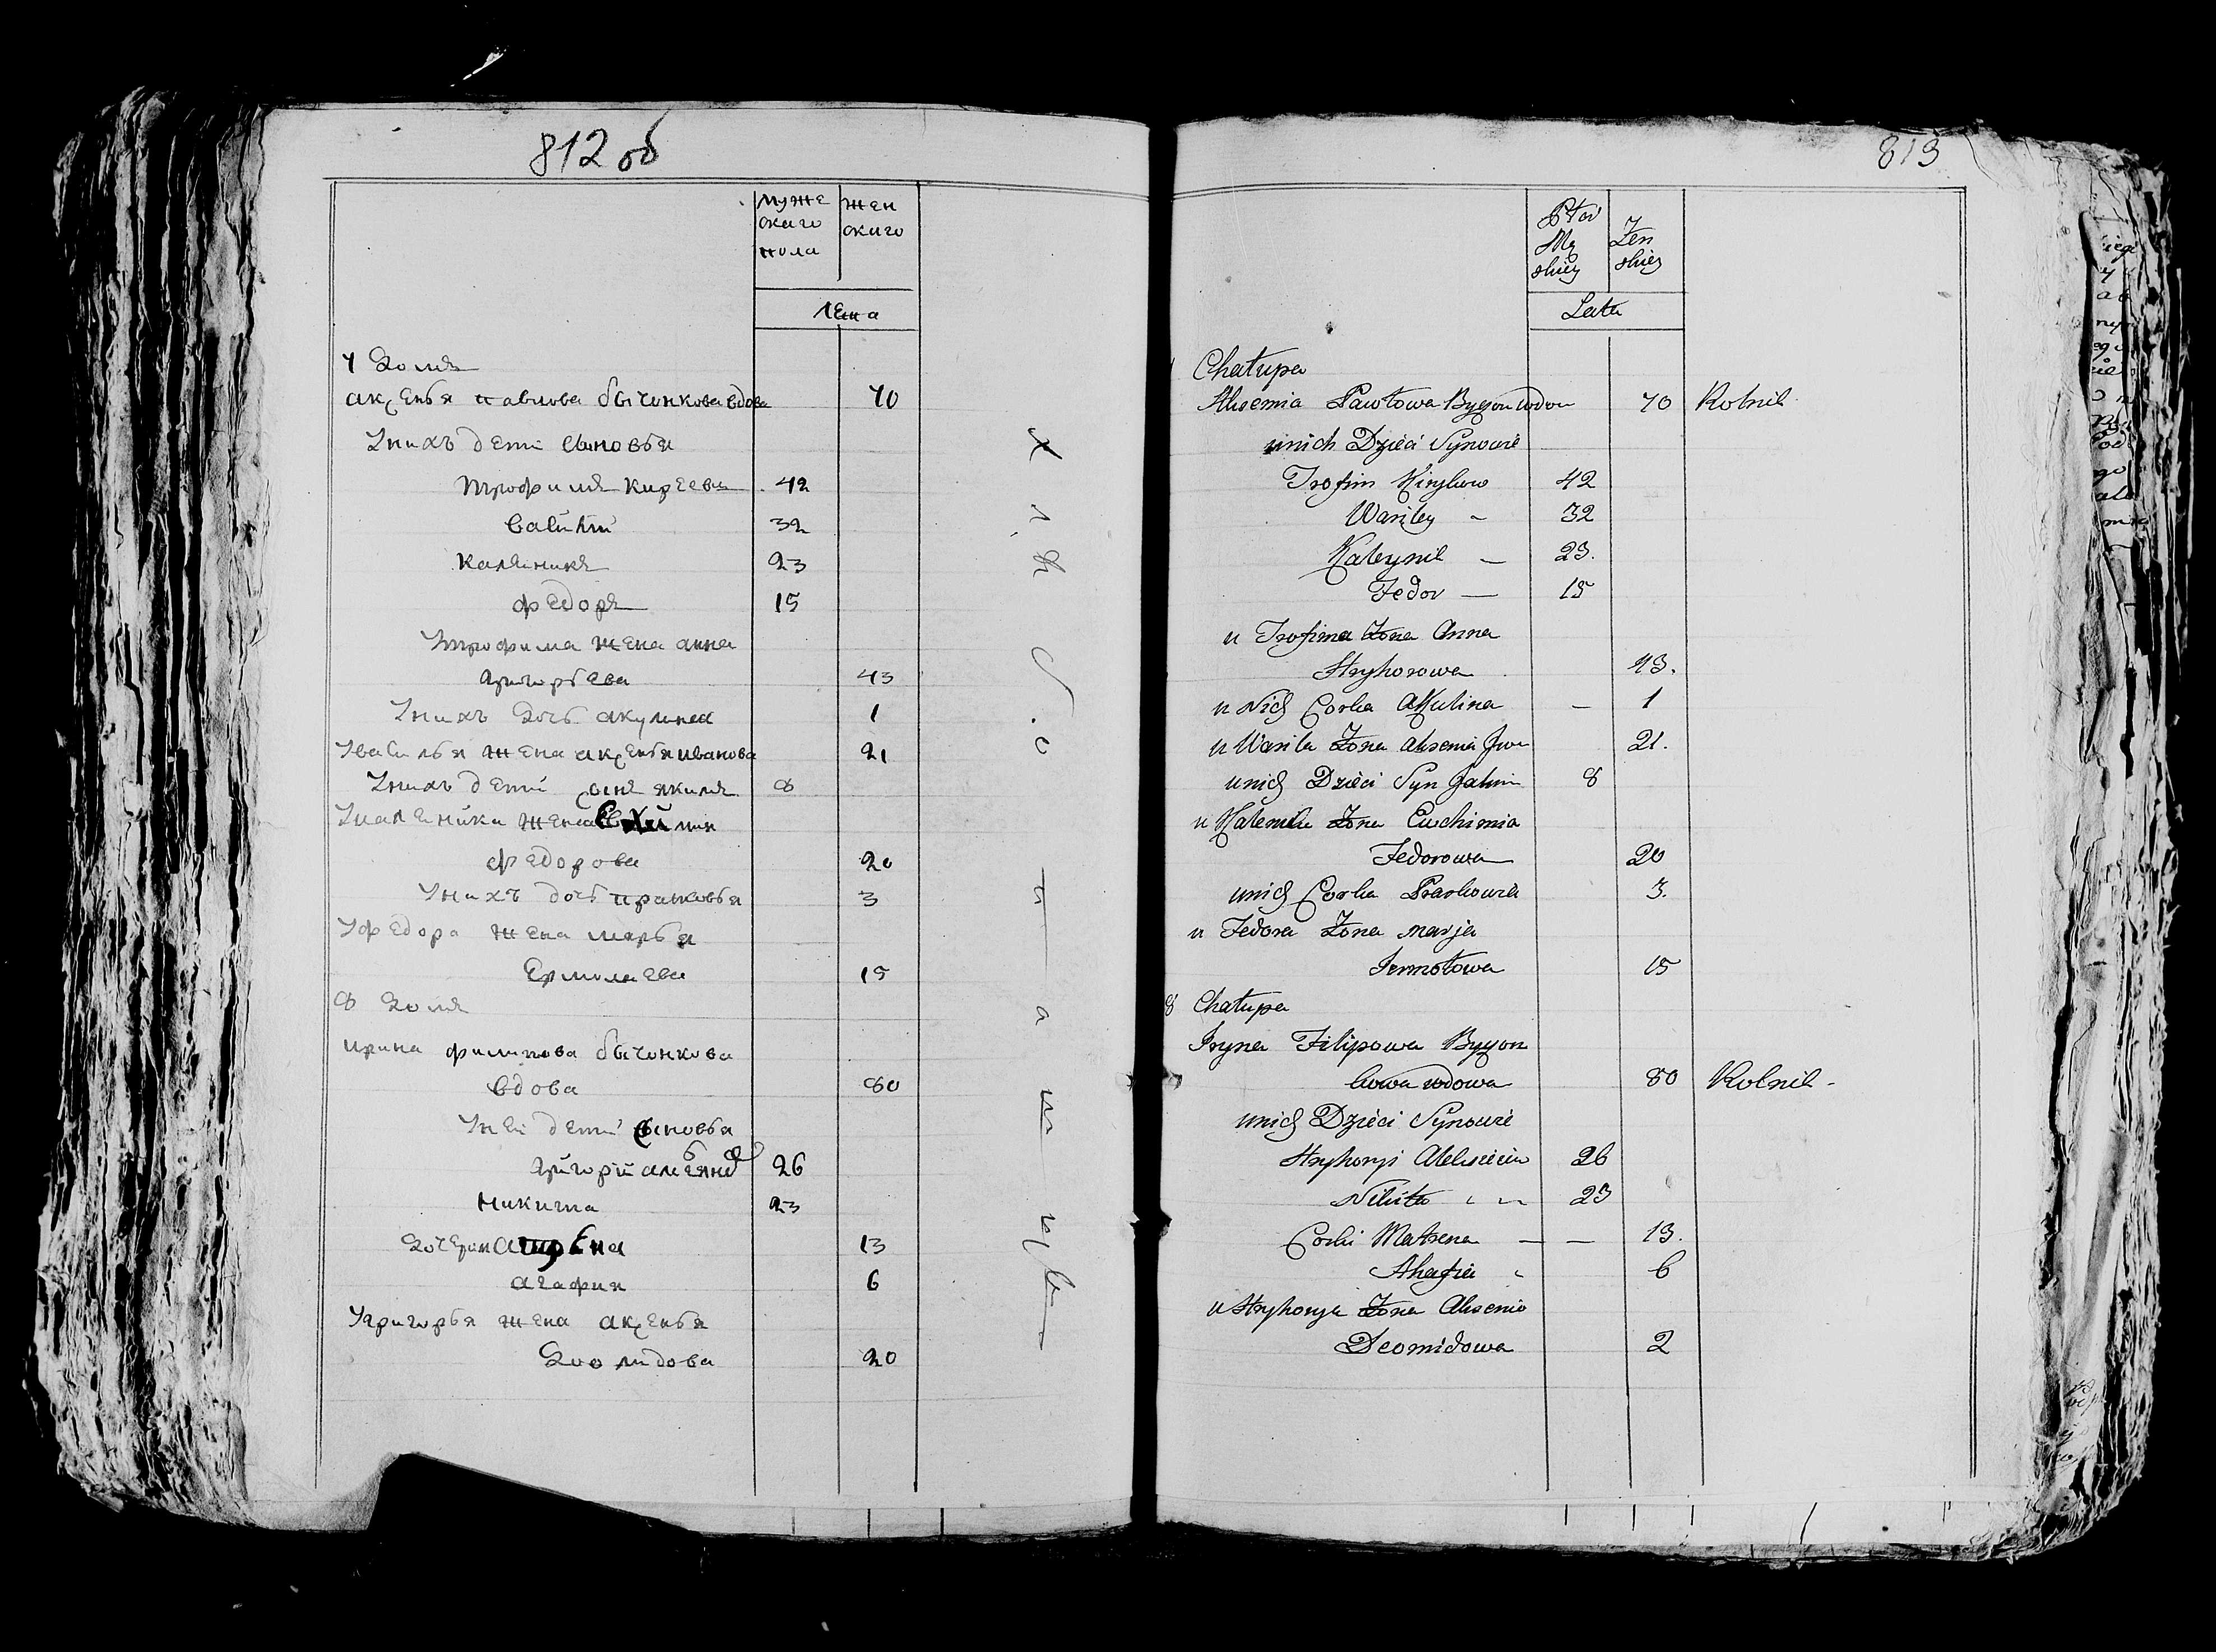 812 об
муже
скаго
пола
жен
скаго
лета
7 Домъ
аксенья павлова бычонкова вдова 70
У нихъ дети сыновья
трофимъ киреевъ 42
василий 32
калиникъ 23
федоръ 15
У трофима жена анна
григорьева 43
У нихъ дочь акулина 1
У василья жена аксенья иванова 21
У нихъ дети сынъ якимъ 8
У калиника жена Евхимия
федорова 20
У нихъ дочь прасковья 3
У федора жена марья
Ермолаева 15
8 Домъ
ирина филипова бычонкова
вдова 80
У ней дети сыновья
григорий 26
никита 23
дочери
агафия 6
У григорья жена аксенья
Доомидова 20
813
Płci
Mę
skiey
Zen
skiey
Lata
Chałupa
Aksemia Pawłowa Byczon wdow 70 Rolnik
u nich Dzieci Synowie
Trofim Kirylow 42
Wasiley - 32
Kaleynik - 23.
Fedor - 15
u Trofima Zona Anna
Hryhorowa 43.
u Nich Corka Akulina - 1
u Wasila Zona Aksemia Iwa 21.
u nich Dzieci Syn Jakim 8
u Kalenika Zona Euchimia
Fedorowa 20
u nich Corka Praskowia 3.
u Fedora Zona marja
Jermołowa 15
8 Chałupa
Iryna Filipowa Byczon
kowa wdowa 80 Rolnik -
u nich Dzieci Synowie
Hryhoryi 26
Nikita 23
Corki Matrena - - 13.
Ahafia 6
u Hryhorya Zona Aksenia
Deomidowa 2